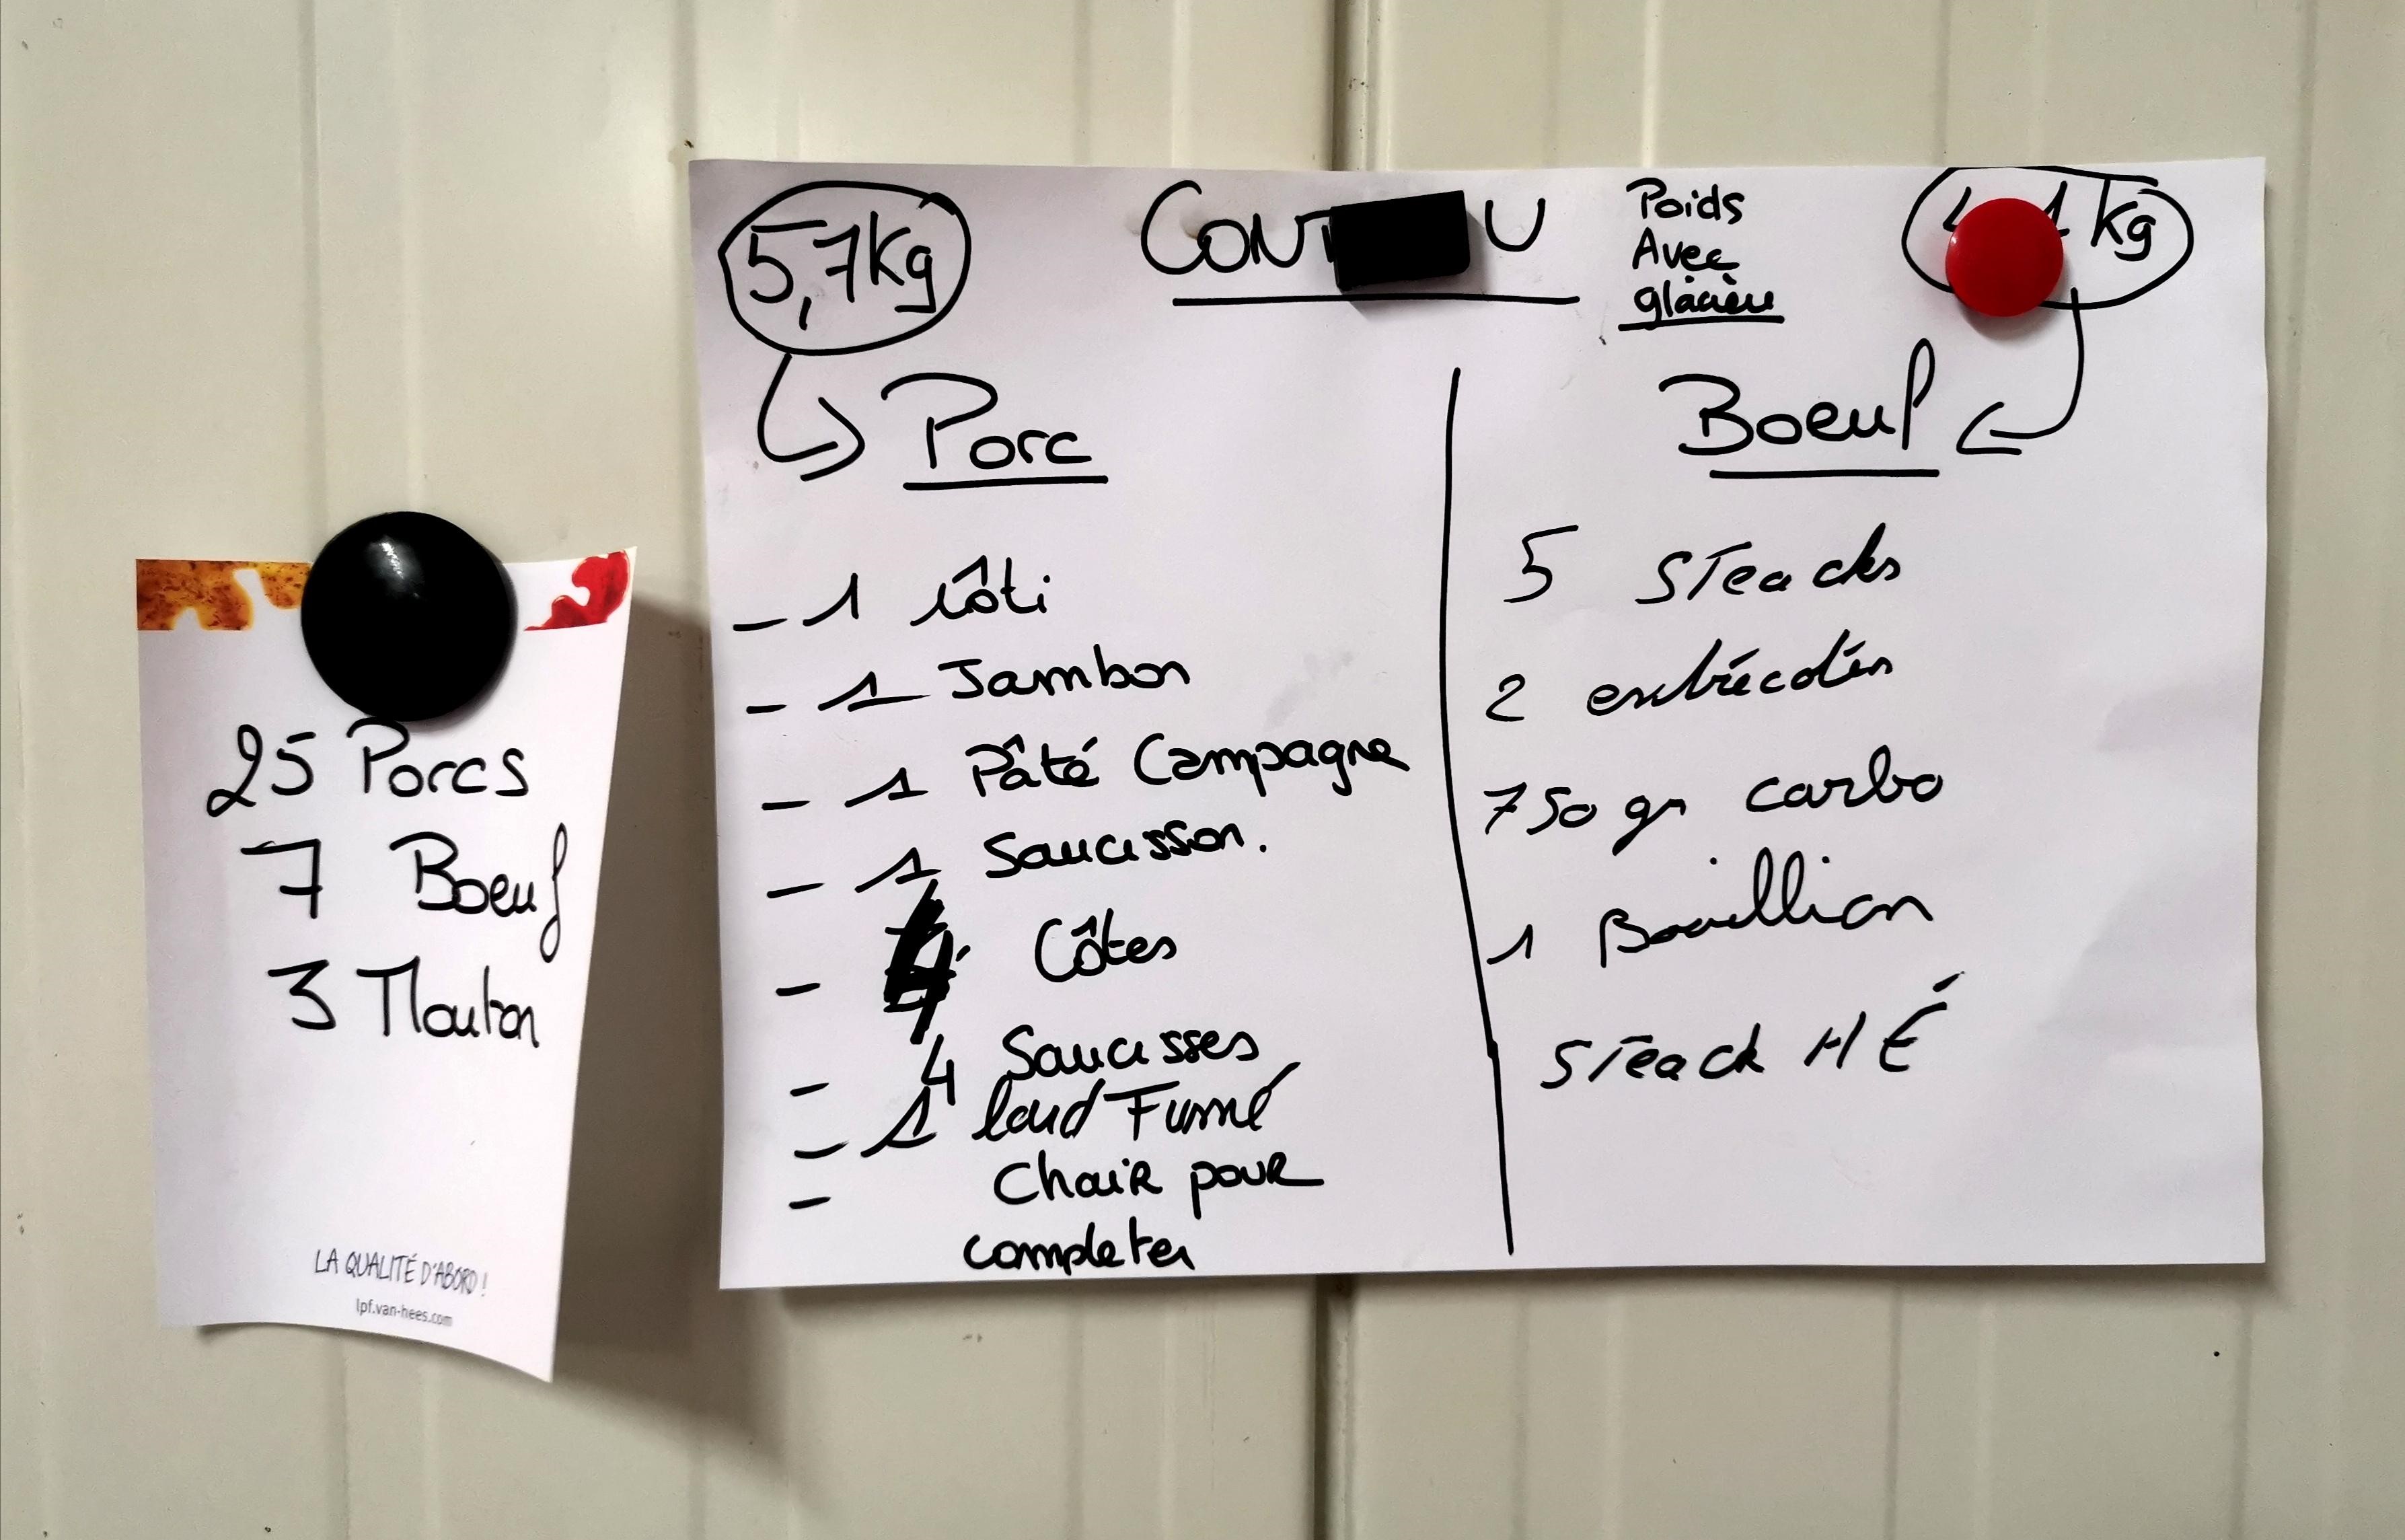 25 Porcs
7 Boeuf
3 Mouton
LA QUALITÉ D'ABORD !
lpf.van-hees.com
5,7Kg
Poids
Avec
glacière
Kg
Porc
- 1 rôti
- 1 Jambon
- 1 Pâté Campagne
- 1 Saucisson.
- Côtes
- 4 Saucisses
- 1 lard Fumé
- Chair pour
completer
Boeuf
5 Steacks
2 entrécotes
750 gr carbo
1 Bouillion
Steack HÉ